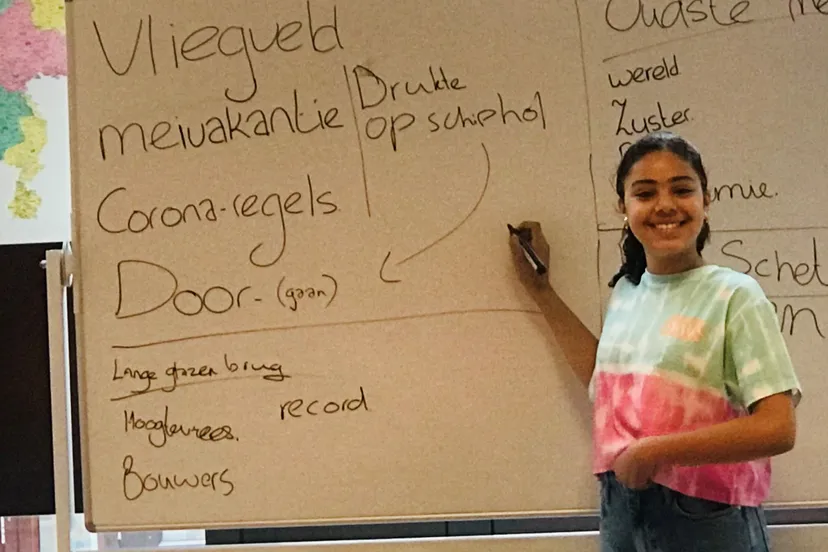 Vliegveld
meivakantie
Drukte
op schiphol
Corona-regels.
Door- (gaan)
Lange glazen brug
Hoogtevrees.
record
Bouwers
Oudste
wereld
Zuster.
mie.
Schet